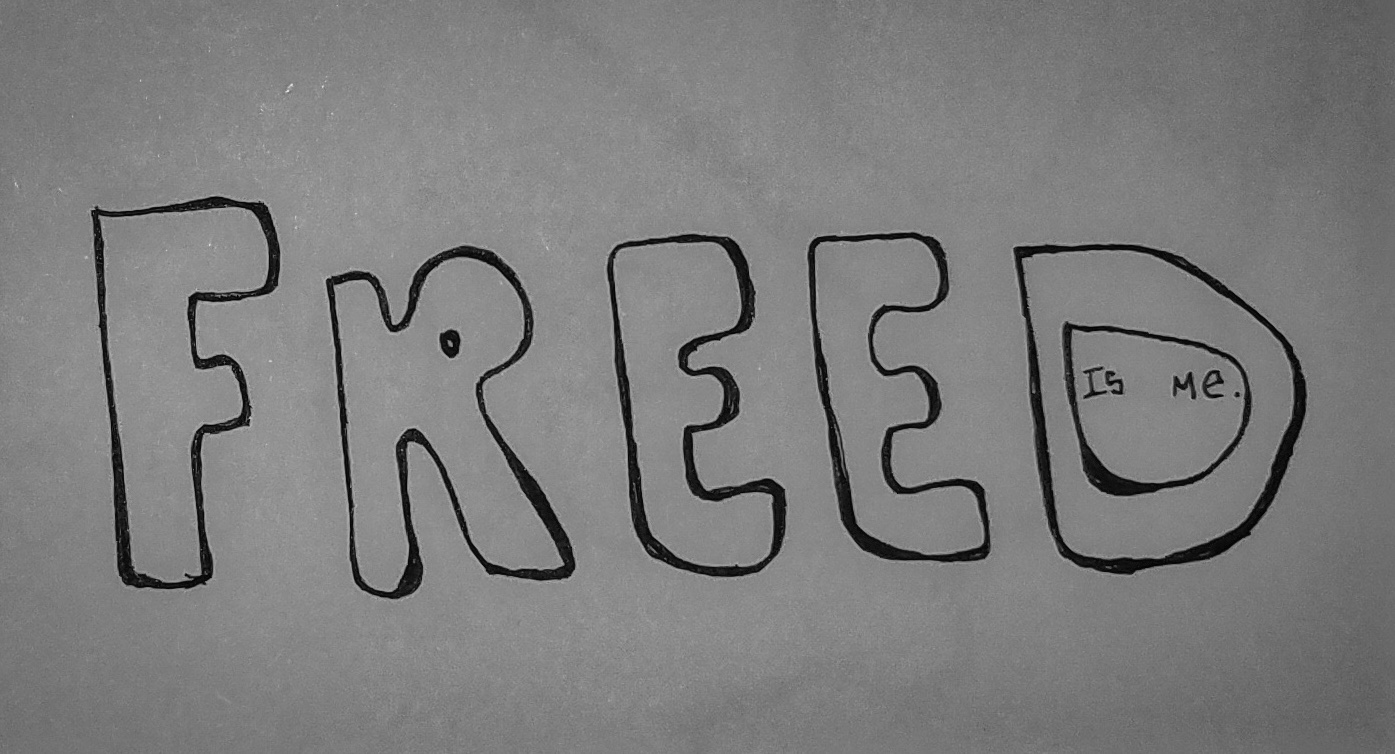 FREED
Is me.